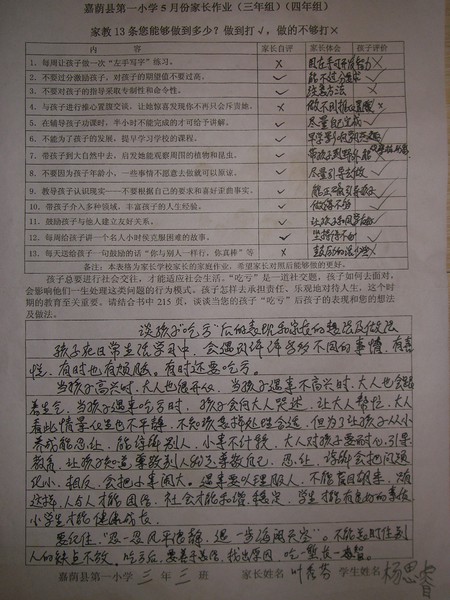 嘉荫县第一小学5月份家长作业(三年组)(四年组)
家教13条您能够做到多少?做到打√,做的不够打×
内 容 家长自评 家长体会 孩子评价
1、每周让孩子做一次“左手写字”练习。 ×
2、不要过分激励孩子,对孩子的期望值不要过高。 ✓
3、不要对孩子的指导采取专制性和命令性。 ✓ 注意方法 ×
4、与孩子进行推心置腹交谈,让她惊喜发现你不再只会斥责她。 × ×
5、在辅导孩子功课时,半小时不能完成的才可给予讲解。 ✓ 尽量自己完成 ✓
6、不能为了孩子的发展,提早学习学校的课程。 ✓
7、带孩子到大自然中去,启发她能观察周围的植物和昆虫。 ✓
8、不要因为孩子年龄小,一些事情不愿意去做就可以原谅。 ✓ 尽量引导去做
9、教导孩子认识现实——不要根据自己的要求和喜好歪曲事实。 ✓ 能正确引导孩子
10、带孩子介入多种领域,丰富孩子的人生经验。 ✓ 做得不够
11、鼓励孩子与他人建立友好关系。 ✓
12、每周给孩子讲一个名人小时侯克服困难的故事。 ✓ 坚持得不到
13、每天送给孩子一句鼓励的话“你与别人一样行,你真棒”等 × 鼓励的话少 ×
备注:本表格为家长学校家长的家庭作业,希望家长对照后能够做的更好。
孩子总要进行社会交往,才能适应社会生活。“吃亏”是一道社交题,孩子如何去面对,
会影响他们一生处理这类问题的行为模式。孩子怎样去承担责任、乐观地对待人生,这个时
期的教育至关重要。请结合书中215页,谈谈当您的孩子“吃亏”后孩子的表现和您的想法
及做法。
谈孩子“吃亏”后的表现和家长的想法及做法
孩子在日常生活学习中,会遇到许许多多不同的事情,有喜
悦,有时也有烦恼。有时还要吃亏。
当孩子高兴时,大人也很开心,当孩子遇来不高兴时,大人也会跟
着生气,当孩子遇来吃亏时,孩子会向大人哭述,让大人帮忙,大人
看此情景心里也不平静,不知该怎持处理合适,但为了让孩子从小
养成能忍让,能信得别人,小事不计较,大人对孩子要耐心引导
教育,让孩子知道尊敬别人就是尊敬自己,忍让,谅解会把问题
化小,相反,会把小事闹大。遇事要以理服人,不能盲目胡来,只有
这样,人与人才能团结,社会才能和谐、稳定,学生才能有良好的事
小学生才能健康成长。
要记住,“忍一忍风平浪静,退一步海阔天空”。不能忘时住别
人的缺点不放,吃亏后,要善于总结,找出原因,吃一堑长一智。
嘉荫县第一小学 三 年 三 班 家长姓名 叶秀芬 学生姓名 杨思睿